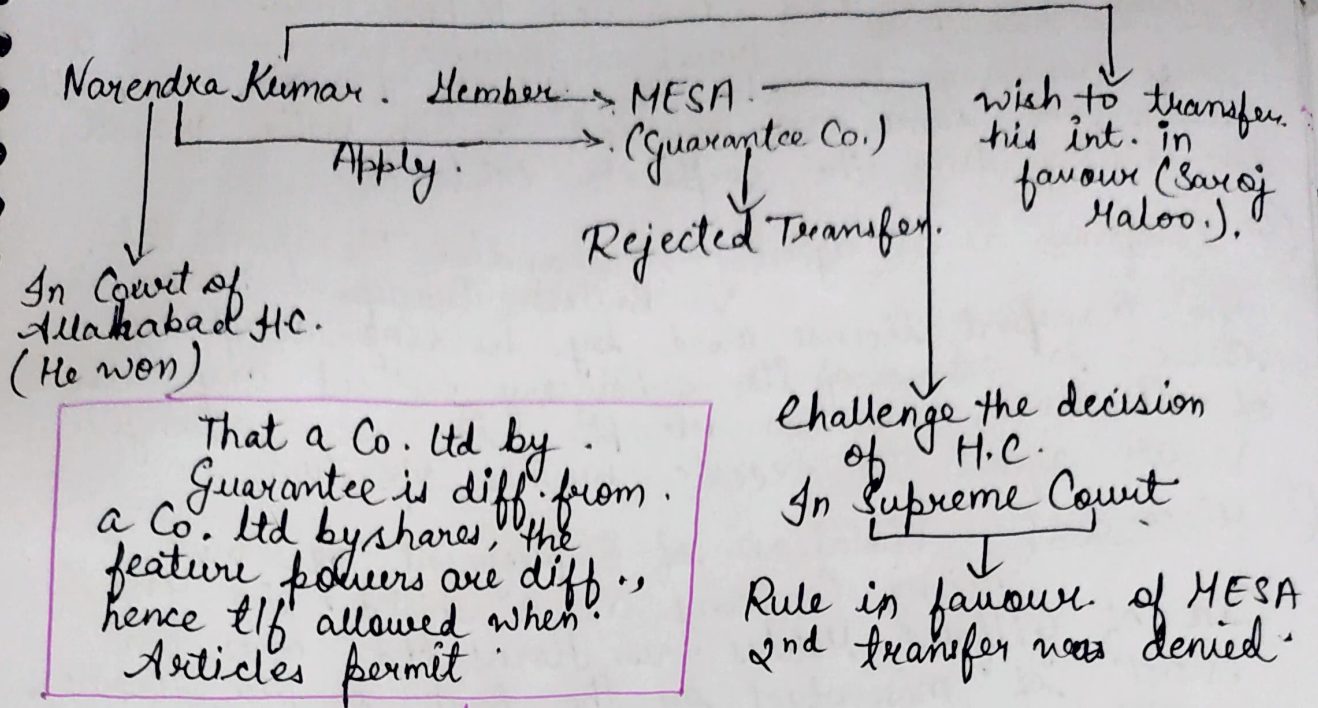 Narendra Kumar. Member MESA
(Guarantee Co.)
Apply.
Rejected Transfer.
wish to transfer.
his int. in
favour (Saroj
Maloo.).
In Court of
Allahabad H.C.
(He won)
That a Co. ltd by.
Guarantee is diff. from.
a Co. ltd by shares, the
feature powers are diff.,
hence t/f allowed when.
Articles permit
Challenge the decision
of H.C.
In Supreme Court
Rule in favour. of MESA
2nd transfer was denied.